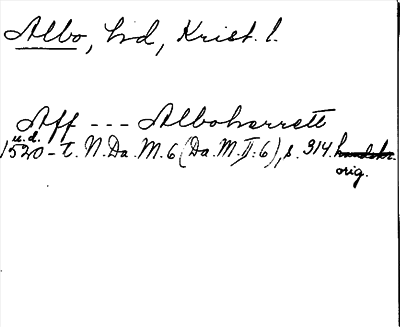 Albo, hd, Krist. l.
Aff --- Alboharrett
u.d.
1520-t. N. Da. M. 6 (Da. M. II:6), s. 314. handskr.
orig.